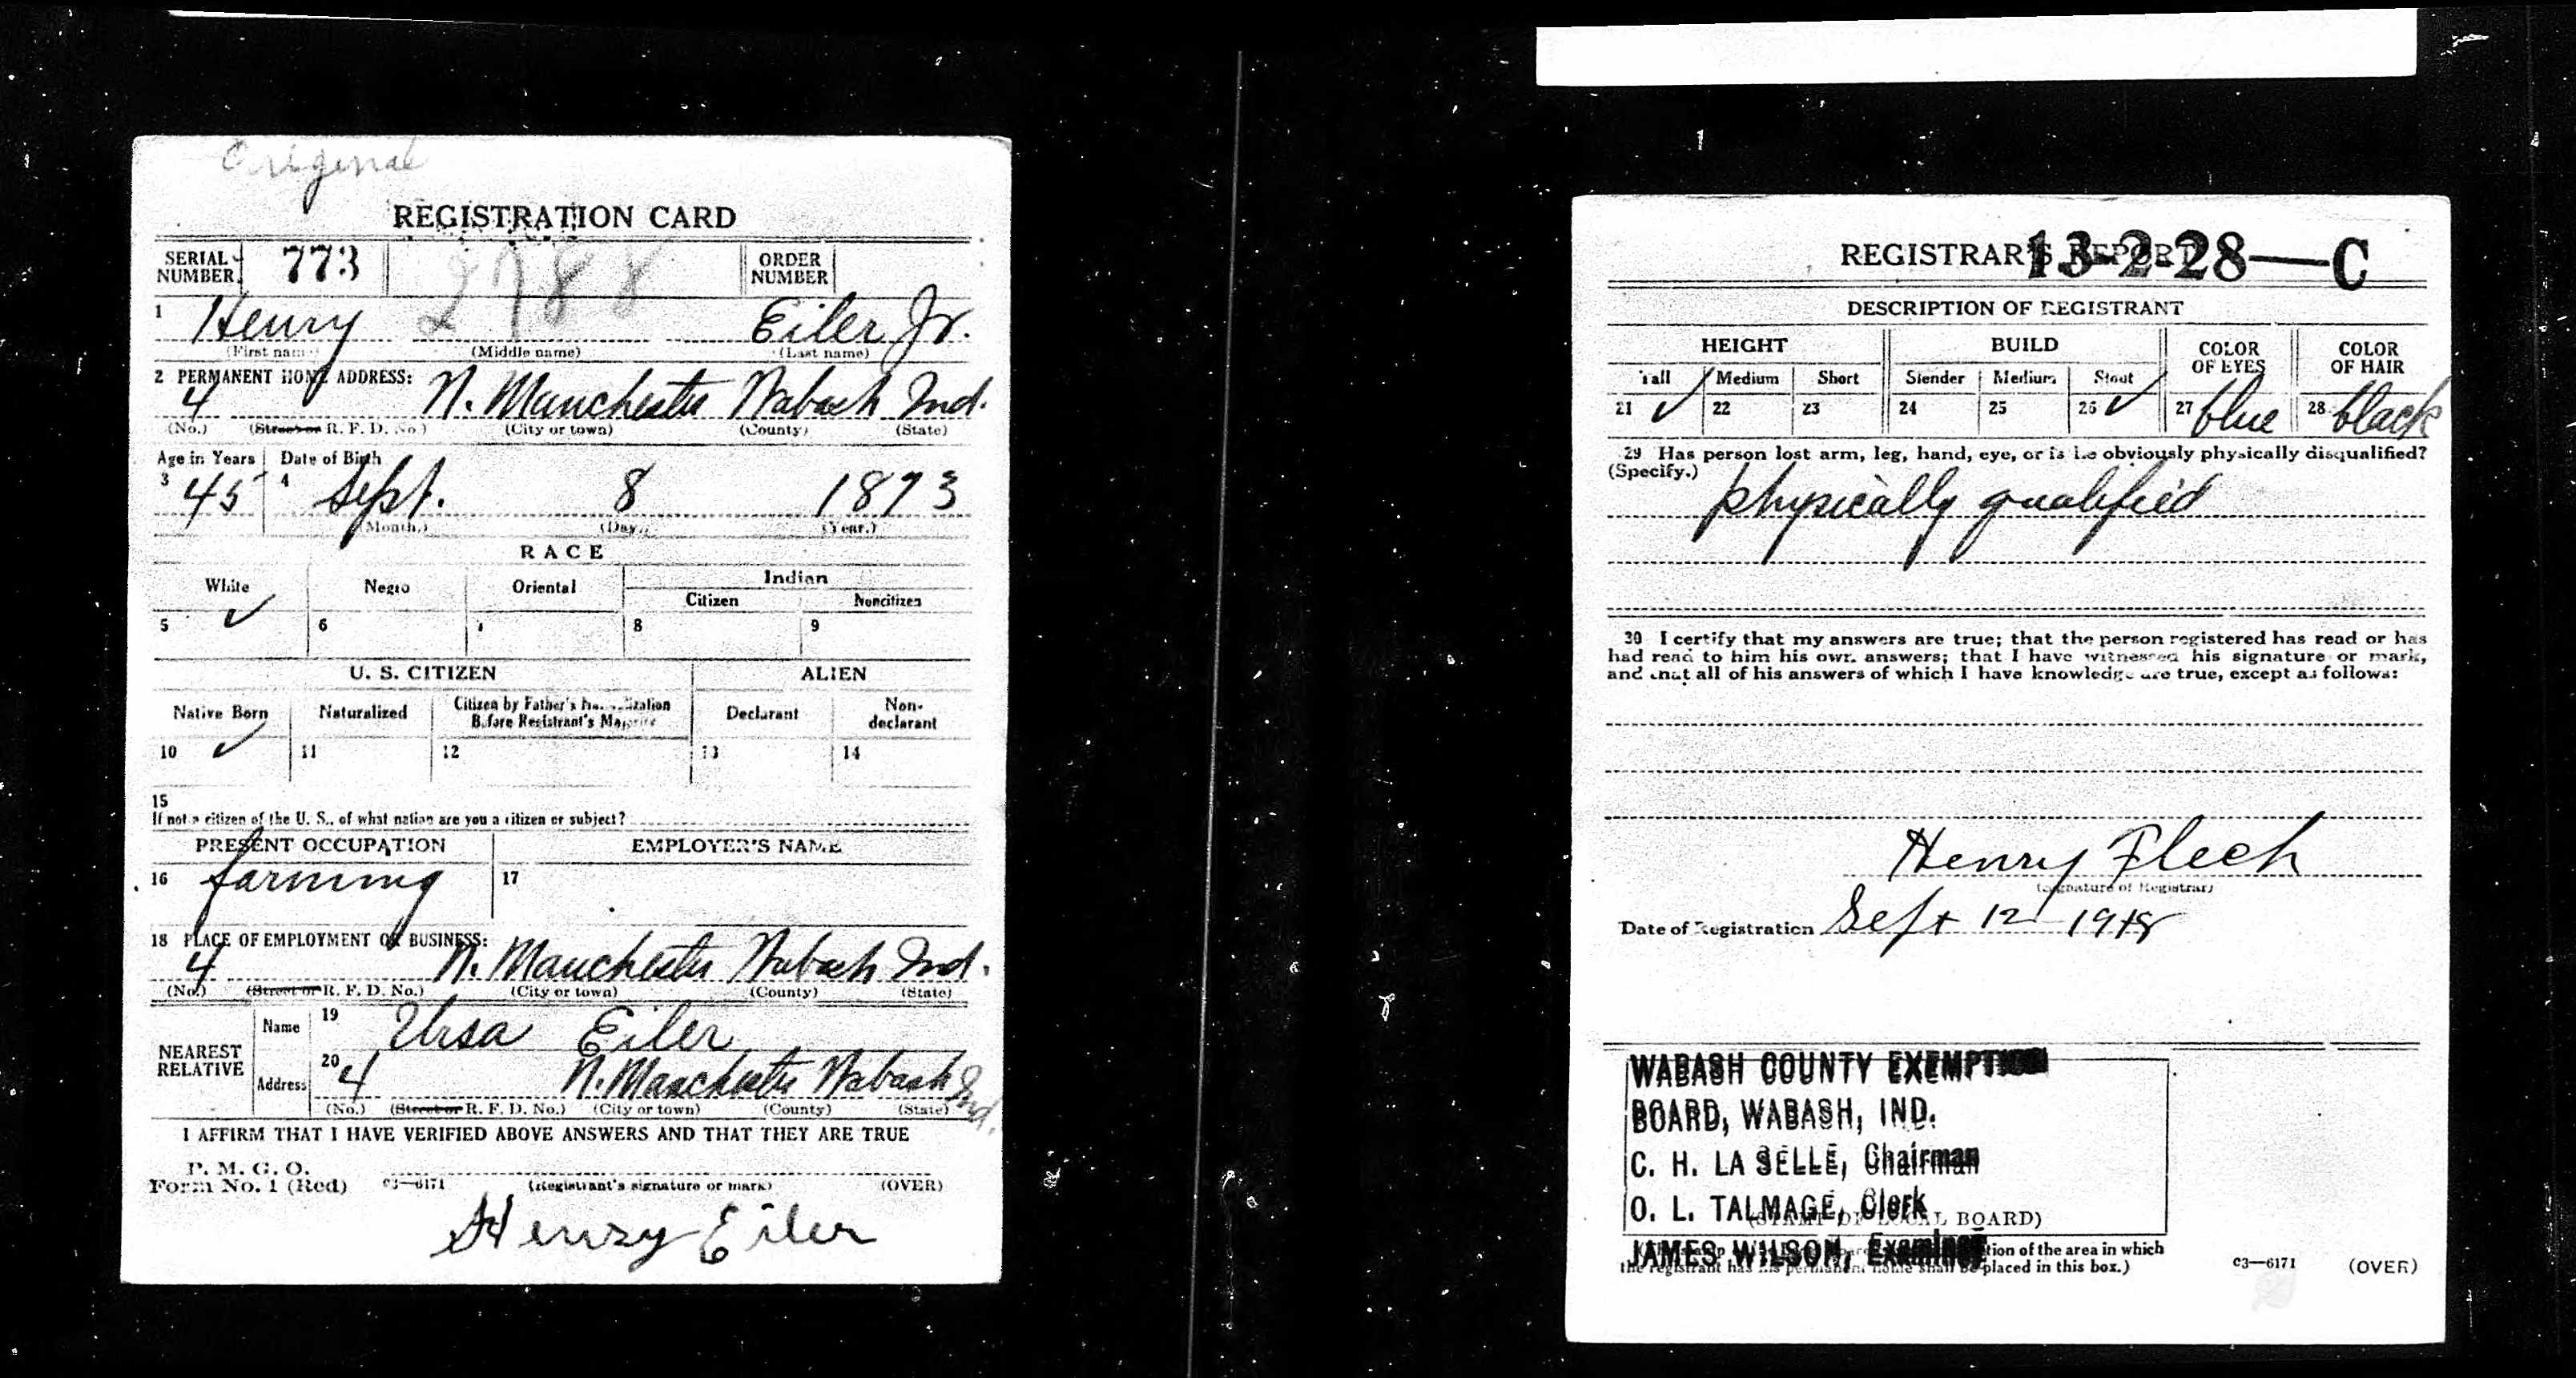 Original
REGISTRATION CARD
SERIAL NUMBER 773 2788 ORDER NUMBER
1 Henry Eiler Jr.
(First name) (Middle name) (Last name)
2 PERMANENT HOME ADDRESS:
4 N. Manchester Wabash Ind.
(No.) (Street or R. F. D. No.) (City or town) (County) (State)
Age in Years Date of Birth
3 45 4 Sept. 8 1873
(Month.) (Day.) (Year.)
RACE
White Negro Oriental Indian
Citizen Noncitizen
5 ✓ 6 7 8 9
U. S. CITIZEN ALIEN
Native Born Naturalized Citizen by Father's Naturalization Before Registrant's Majority Declarant Non-declarant
10 ✓ 11 12 13 14
15
If not a citizen of the U. S., of what nation are you a citizen or subject?
PRESENT OCCUPATION EMPLOYER'S NAME
16 farming 17
18 PLACE OF EMPLOYMENT OR BUSINESS:
4 N. Manchester Wabash Ind.
(No.) (Street or R. F. D. No.) (City or town) (County) (State)
NEAREST RELATIVE
Name 19 Ursa Eiler
Address 20 4 N. Manchester Wabash Ind.
(No.) (Street or R. F. D. No.) (City or town) (County) (State)
I AFFIRM THAT I HAVE VERIFIED ABOVE ANSWERS AND THAT THEY ARE TRUE
P. M. G. O.
Form No. 1 (Red) 03—6171 (Registrant's signature or mark) (OVER)
Henry Eiler
REGISTRAR'S REPORT 13-2-28—C
DESCRIPTION OF REGISTRANT
HEIGHT BUILD COLOR OF EYES COLOR OF HAIR
Tall Medium Short Slender Medium Stout
21 ✓ 22 23 24 25 26 ✓ 27 blue 28 black
29 Has person lost arm, leg, hand, eye, or is he obviously physically disqualified?
(Specify.)
physically qualified
30 I certify that my answers are true; that the person registered has read or has
had read to him his own answers; that I have witnessed his signature or mark,
and that all of his answers of which I have knowledge are true, except as follows:
Henry Flech
(Signature of Registrar)
Date of Registration Sept 12 1918
WABASH COUNTY EXEMPTION
BOARD, WABASH, IND.
C. H. LA SELLE, Chairman
O. L. TALMAGE, Clerk
(STAMP OF LOCAL BOARD)
JAMES WILSON, Examiner
tion of the area in which
the registrant has his permanent home shall be placed in this box.)
03—6171 (OVER)